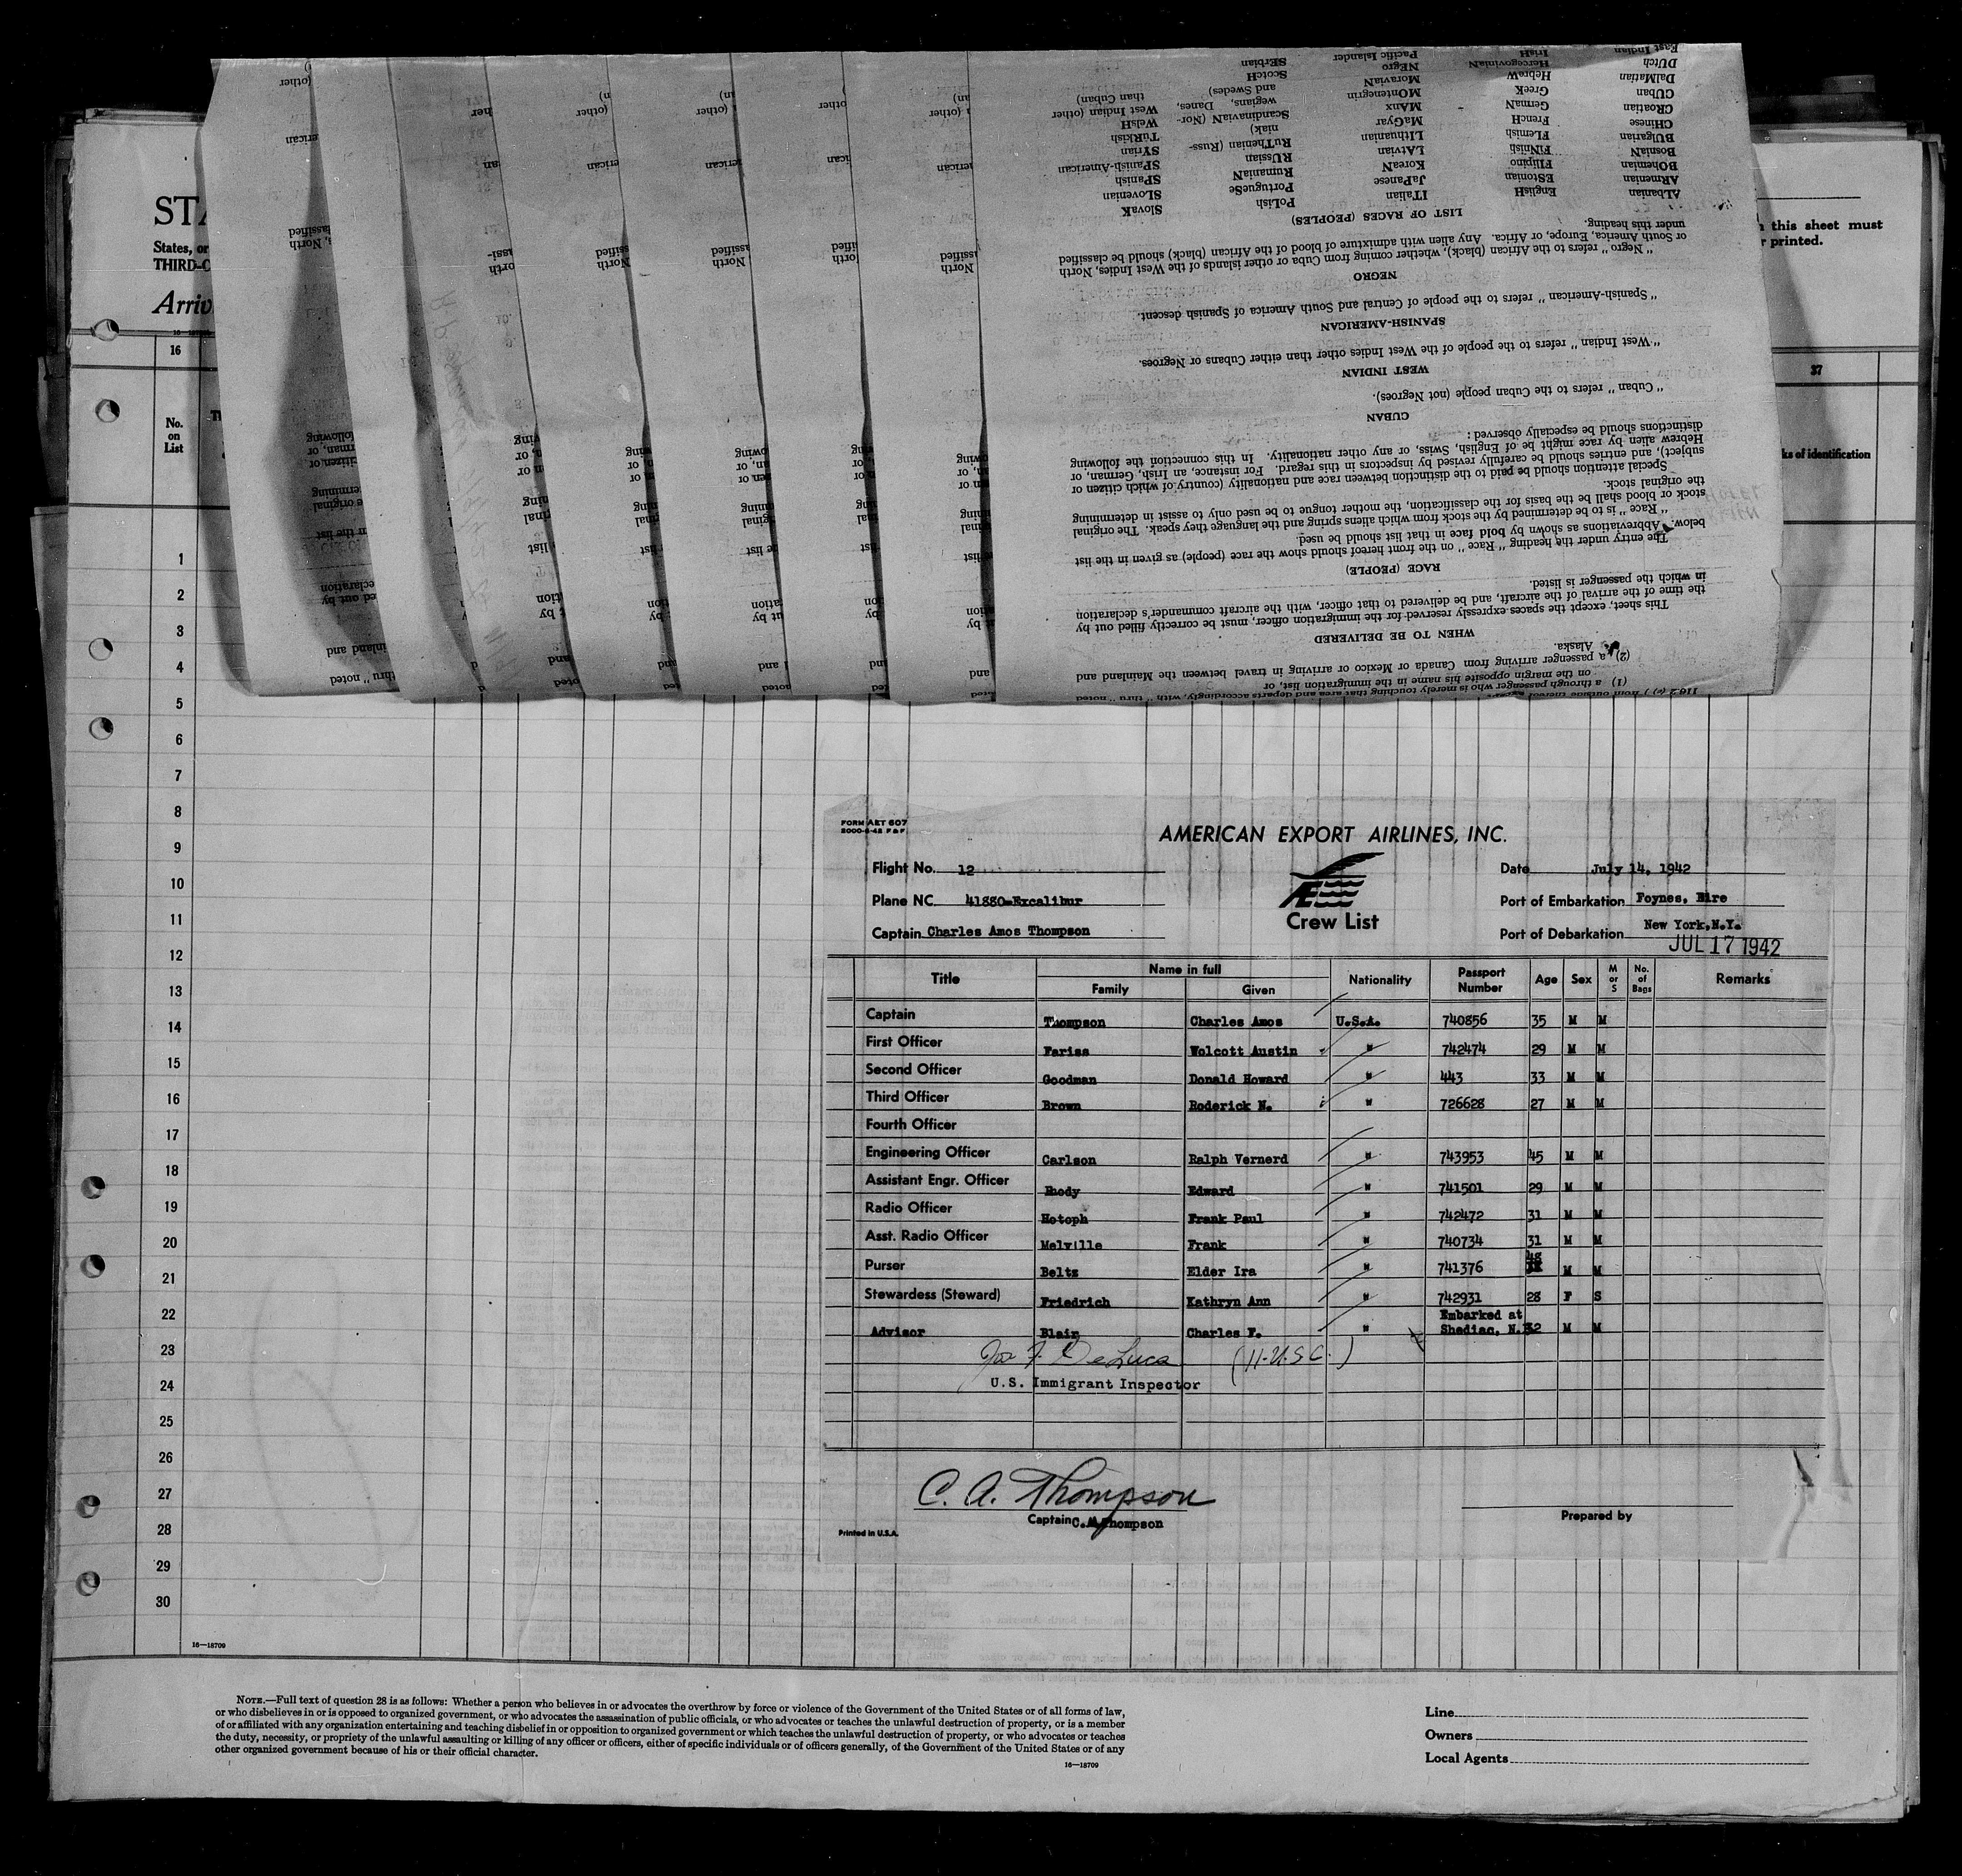 STA
States, or
THIRD-C
Arriv
this sheet must
r printed.
16
37
No.
on
List
ks of identification
1
2
3
4
5
6
7
8
9
10
11
12
13
14
15
16
17
18
19
20
21
22
23
24
25
26
27
28
29
30
16—18709
East Indian IrisH Pacific Islander SErbian
DUtch HercegoviniaN NEgro ScotcH
DalMatian HebreW MoraviaN and Swedes) than Cuban)
CUban GreeK MOntenegrin wegians, Danes, West Indian (other
CRoatian GermaN MAnx ScandinaviaN (Nor- WelsH
CHinese FrencH MaGyar niak) TuRkish
BUlgarian FLemish LIthuanian RuThenian (Russ- SYrian
BosniaN FiNnish LAtvian RUssian SPanish-American
BOhemian FIlipino KoreaN RumaniaN SPanish
ARmenian EStonian JaPanese PortugueSe SLovenian
ALbanian EnglisH ITalian PoLish SlovaK
LIST OF RACES (PEOPLES)
under this heading.
or South America, Europe, or Africa. Any alien with admixture of blood of the African (black) should be classified
"Negro" refers to the African (black), whether coming from Cuba or other islands of the West Indies, North
NEGRO
"Spanish-American" refers to the people of Central and South America of Spanish descent.
SPANISH-AMERICAN
"West Indian" refers to the people of the West Indies other than either Cubans or Negroes.
WEST INDIAN
"Cuban" refers to the Cuban people (not Negroes).
CUBAN
distinctions should be especially observed:
Hebrew alien by race might be of English, Swiss, or any other nationality. In this connection the following
subject), and entries should be carefully revised by inspectors in this regard. For instance, an Irish, German, or
Special attention should be paid to the distinction between race and nationality (country of which citizen or
the original stock.
stock or blood shall be the basis for the classification, the mother tongue to be used only to assist in determining
"Race" is to be determined by the stock from which aliens spring and the language they speak. The original
below. Abbreviations as shown by bold face in that list should be used.
The entry under the heading "Race" on the front hereof should show the race (people) as given in the list
RACE (PEOPLE)
in which the passenger is listed.
the time of the arrival of the aircraft, and be delivered to that officer, with the aircraft commander's declaration
This sheet, except the spaces expressly reserved for the immigration officer, must be correctly filled out by
WHEN TO BE DELIVERED
Alaska.
(2) a passenger arriving from Canada or Mexico or arriving in travel between the Mainland and
on the margin opposite his name in the immigration list, or
(1) a through passenger who is merely touching that area and departs accordingly, with "thru" noted
FORM AET 607
2000-6-42 P & F
AMERICAN EXPORT AIRLINES, INC.
Flight No. 12
Date July 14, 1942
Plane NC 41880-Excalibur
Port of Embarkation Foynes, Eire
AE
Crew List
Captain Charles Amos Thompson
Port of Debarkation New York,N.Y.
JUL 17 1942
Title Name in full Nationality Passport Number Age Sex M or S No. of Bags Remarks
Family Given
Captain Thompson Charles Amos U.S.A. 740856 35 M M
First Officer Fariss Wolcott Austin " 742474 29 M M
Second Officer Goodman Donald Howard " 443 33 M M
Third Officer Brown Roderick N. " 726628 27 M M
Fourth Officer
Engineering Officer Carlson Ralph Vernerd " 743953 45 M M
Assistant Engr. Officer Rhody Edward " 741501 29 M M
Radio Officer Hotoph Frank Paul " 742472 31 M M
Asst. Radio Officer Melville Frank " 740734 31 M M
Purser Beltz Elder Ira " 741376 48 M M
Stewardess (Steward) Friedrich Kathryn Ann " 742931 28 F S
Advisor Blair Charles F. " Embarked at Shediac, N. 32 M M
Jos F. DeLuca (11-U.S.C.)
U.S. Immigrant Inspector
C. A. Thompson
Captain C. A. Thompson
Prepared by
Printed in U.S.A.
NOTE.—Full text of question 28 is as follows: Whether a person who believes in or advocates the overthrow by force or violence of the Government of the United States or of all forms of law,
or who disbelieves in or is opposed to organized government, or who advocates the assassination of public officials, or who advocates or teaches the unlawful destruction of property, or is a member
of or affiliated with any organization entertaining and teaching disbelief in or opposition to organized government or which teaches the unlawful destruction of property, or who advocates or teaches
the duty, necessity, or propriety of the unlawful assaulting or killing of any officer or officers, either of specific individuals or of officers generally, of the Government of the United States or of any
other organized government because of his or their official character.
16—18709
Line
Owners
Local Agents